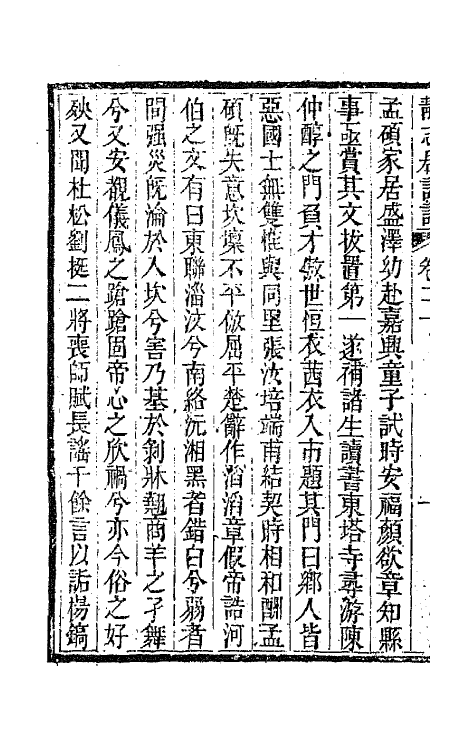 靜志居詩話 卷二十 一
孟碩家居盛澤幼赴嘉興童子試時安福顏欲章知縣
事亟賞其文拔置第一遂補諸生讀書東塔寺尋游陳
仲醇之門負才傲世恒衣茜衣入市題其門曰鄉人皆
惡國士無雙惟與同里張汝培端甫結契時相和酬孟
碩旣失意坎壈不平倣屈平楚辭作滔滔章假帝誥河
伯之文有曰東聯淄汶兮南絡沅湘黑者錯白兮弱者
間强災旣淪於入坎兮害乃基於剝牀翹商羊之孑舞
兮又安覩儀鳳之蹌蹌固帝心之欣禍兮亦今俗之好
殃又聞杜松劉挺二將喪師賦長謠千餘言以詬楊鎬